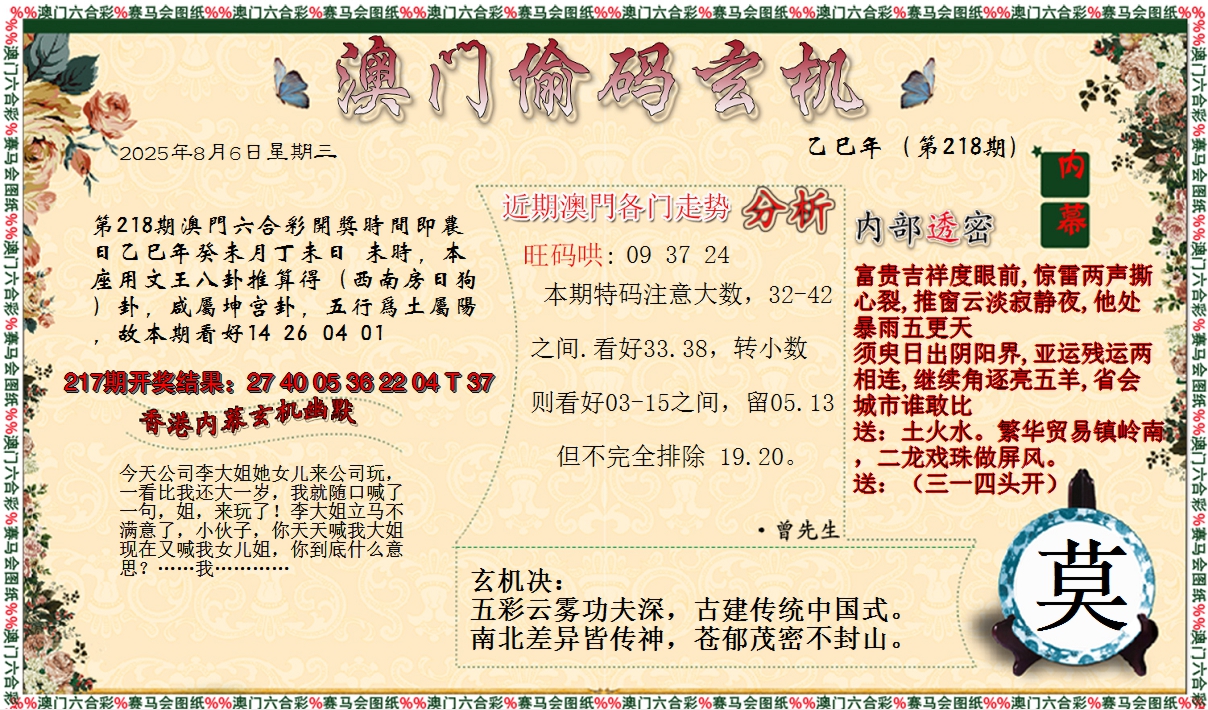 %%澳门六合彩%赛马会图纸%%澳门六合彩%赛马会图纸%%澳门六合彩%赛马会图纸%%澳门六合彩%赛马会图纸%%澳门六合彩%赛马会图纸%%澳门六合彩%赛马会图纸%%
澳门偷码玄机
2025年8月6日星期三
乙巳年（第218期）
内
幕
第218期澳門六合彩開獎時間即農
日乙巳年癸未月丁未日 未時，本
座用文王八卦推算得（西南房日狗
）卦，咸屬坤宫卦，五行爲土屬陽
，故本期看好14 26 04 01
217期开奖结果：27 40 05 36 22 04 T 37
香港内幕玄机幽默
今天公司李大姐她女儿来公司玩，
一看比我还大一岁，我就随口喊了
一句，姐，来玩了！李大姐立马不
满意了，小伙子，你天天喊我大姐
现在又喊我女儿姐，你到底什么意
思？……我…………
近期澳門各门走势 分析
旺码哄: 09 37 24
本期特码注意大数，32-42
之间.看好33.38，转小数
则看好03-15之间，留05.13
但不完全排除 19.20。
·曾先生
内部透密
富贵吉祥度眼前,惊雷两声撕
心裂,推窗云淡寂静夜,他处
暴雨五更天
须臾日出阴阳界,亚运残运两
相连,继续角逐亮五羊,省会
城市谁敢比
送：土火水。繁华贸易镇岭南
，二龙戏珠做屏风。
送：（三一四头开）
玄机决：
五彩云雾功夫深，古建传统中国式。
南北差异皆传神，苍郁茂密不封山。
莫
%%澳门六合彩%赛马会图纸%%澳门六合彩%赛马会图纸%%澳门六合彩%赛马会图纸%%澳门六合彩%赛马会图纸%%澳门六合彩%赛马会图纸%%澳门六合彩%赛马会图纸%%